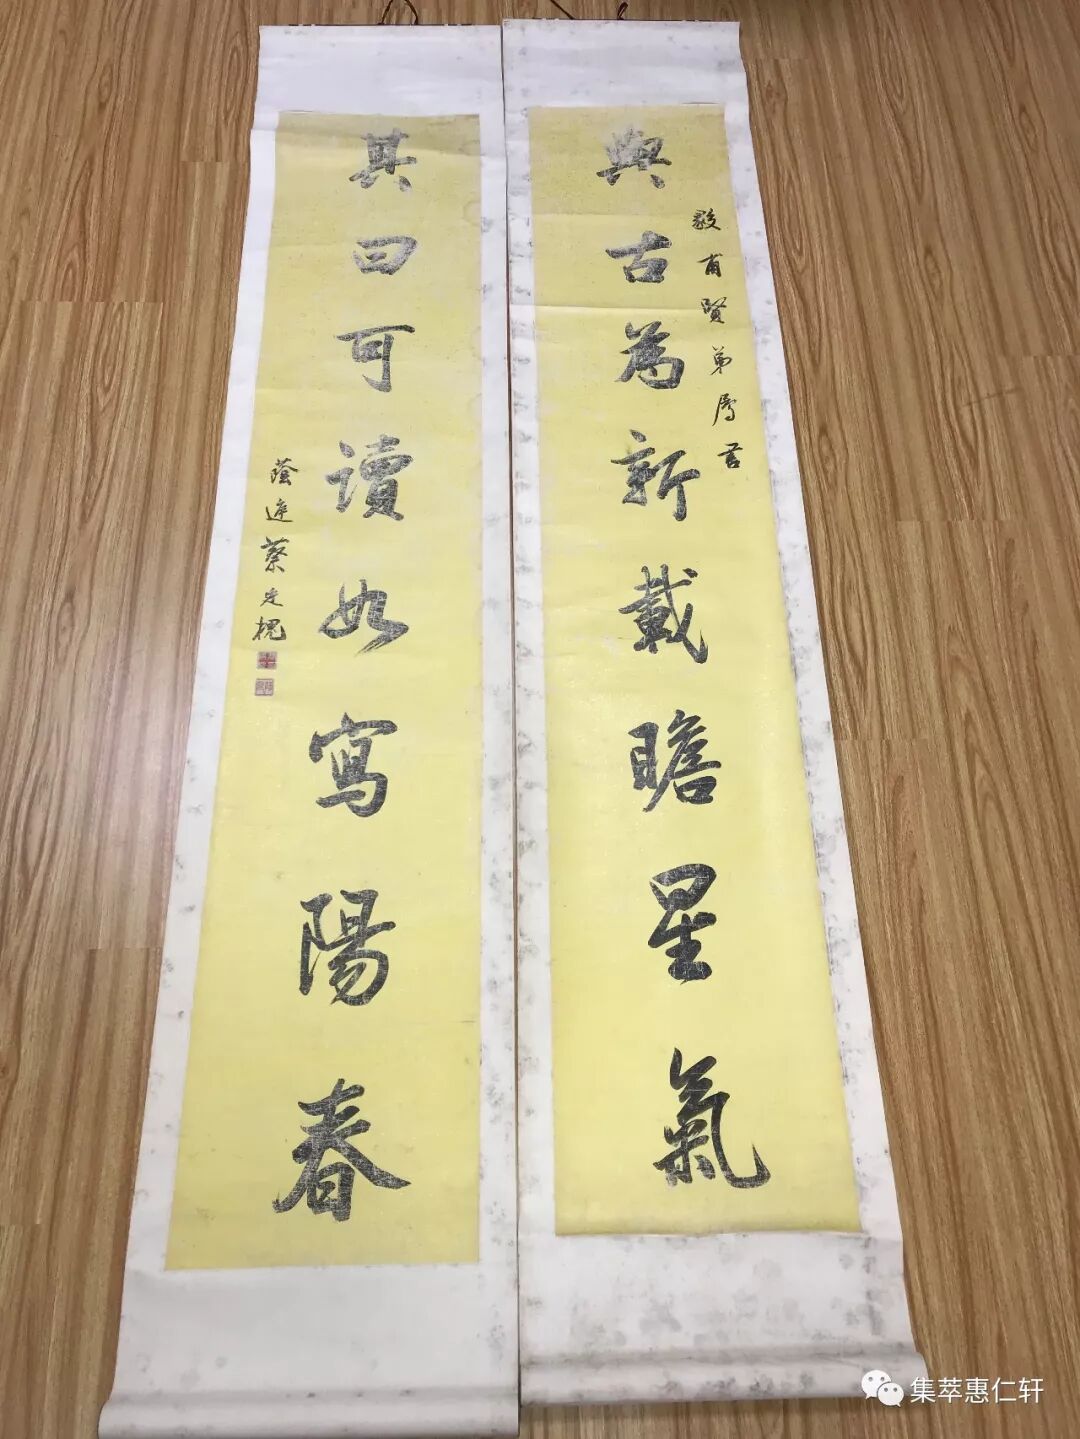 與古為新載瞻星氣
毅甫賢弟屬書
其曰可讀如寫陽春
蔭庭蔡之槐
集萃惠仁轩